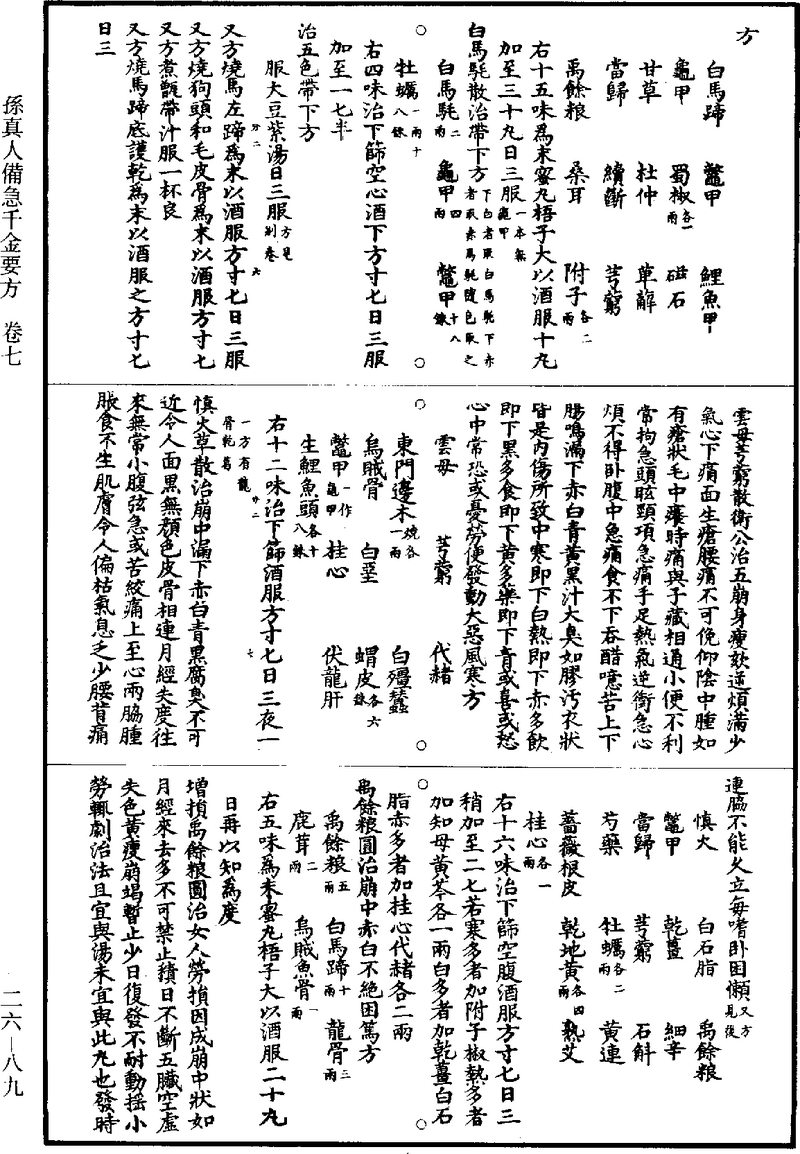 方
白馬蹄 鼈甲 鯉魚甲
龜甲 蜀椒各一兩 磁石
甘草 杜仲 萆薢
當歸 續斷 芎藭
禹餘粮 桑耳 附子各二兩
右十五味爲末蜜丸梧子大以酒服十丸
加至三十丸日三服一本無龜甲
白馬毦散治帶下方下白者取白馬毦下赤者取赤馬毦隨色取之
白馬毦二兩 龜甲四兩 鼈甲十八銖
牡蠣一兩十八銖
右四味治下篩空心酒下方寸匕日三服
加至一匕半
治五色帶下方
服大豆紫湯日三服方見別卷
又方燒馬左蹄爲末以酒服方寸匕日三服
又方燒狗頭和毛皮骨爲末以酒服方寸匕
又方煮甑帶汁服一杯良
又方燒馬蹄底護乾爲末以酒服之方寸匕
日三
雲母芎藭散衛公治五崩身瘦欬逆煩滿少
氣心下痛面生瘡腰痛不可俛仰陰中腫如
有瘡狀毛中癢時痛與子藏相通小便不利
常拘急頭眩頸項急痛手足熱氣逆衝急心
煩不得卧腹中急痛食不下吞醋噫苦上下
腸鳴漏下赤白青黄黑汁大臭如膠汚衣狀
皆是内傷所致中寒即下白熱即下赤多飲
即下黑多食即下黄多藥即下青或喜或愁
心中常恐或憂勞便發動大惡風寒方
雲母 芎藭 代赭
東門邊木燒各一兩 白殭蠶
烏賊骨 白堊 蝟皮各六銖
鼈甲一作龜甲 桂心 伏龍肝
生鯉魚頭各十八銖
右十二味治下篩酒服方寸匕日三夜一
一方有龍骨乾葛
慎火草散治崩中漏下赤白青黑腐臭不可
近令人面黑無顔色皮骨相連月經失度往
來無常小腹弦急或苦絞痛上至心兩脇腫
脹食不生肌膚令人偏枯氣息乏少腰背痛
連脇不能久立每嗜卧困懶又方見後
慎火 白石脂 禹餘粮
鼈甲 乾薑 細辛
當歸 芎藭 石斛
芍藥 牡蠣各二兩 黄連
薔薇根皮 乾地黄各四兩 熟艾
桂心各一兩
右十六味治下篩空腹酒服方寸匕日三
稍加至二匕若寒多者加附子椒熱多者
加知母黄芩各一兩白多者加乾薑白石
脂赤多者加桂心代赭各二兩
禹餘粮圓治崩中赤白不絶困篤方
禹餘粮五兩 白馬蹄十兩 龍骨三兩
鹿茸二兩 烏賊魚骨一兩
右五味爲末蜜丸梧子大以酒服二十丸
日再以知爲度
增損禹餘粮圓治女人勞損因成崩中狀如
月經來去多不可禁止積日不斷五臟空虚
失色黄瘦崩竭暫止少日復發不耐動揺小
勞輒劇治法且宜與湯未宜與此丸也發時
孫真人備急千金要方 卷七
二六—八九